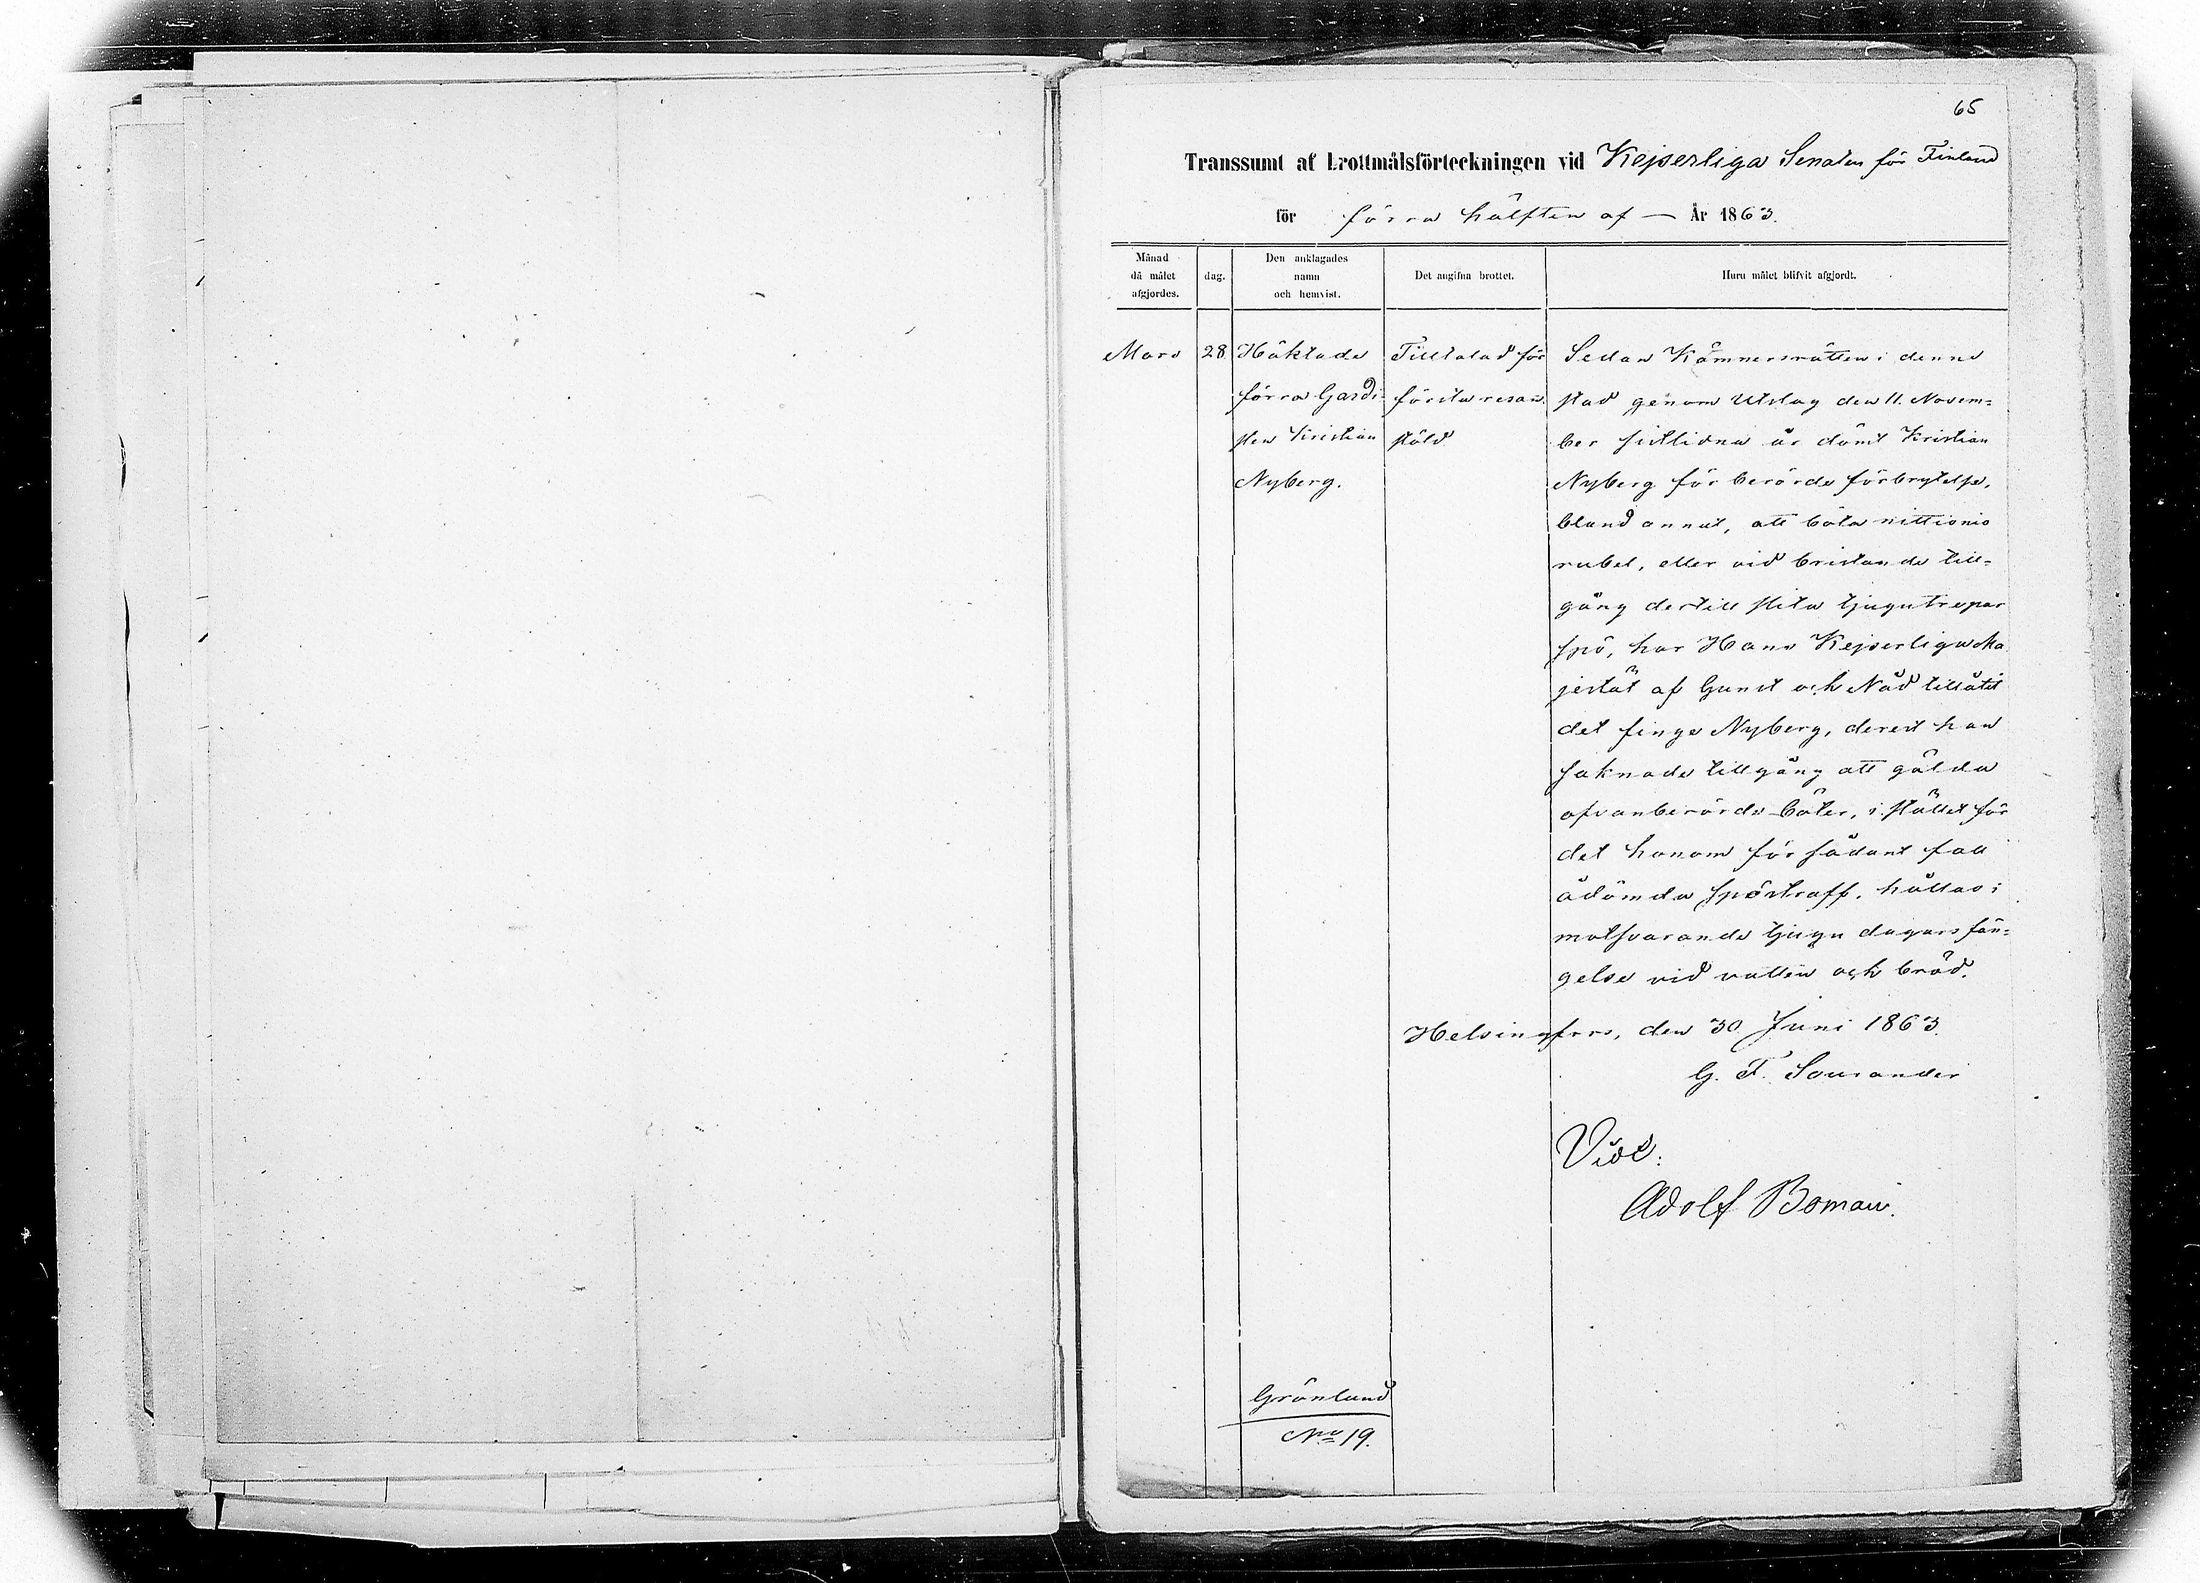 65
Transsumt af brottmålsförteckningen vid Kejserliga Senaten för Finland
för förra hälften af — År 1863.
Månad
då målet
afgjordes.
dag.
Den anklagades
namn
och hemvist.
Det angifna brottet.
Huru målet blifvit afgjordt.
Mars
28
Häktade
förra Gardi-
sten Kristian
Nyberg.
Tilltalad för
första resan
stöld.
Sedan Kämnersrätten i denna
stad genom Utslag den 11. Novem=
ber sistlidna år dömt Kristian
Nyberg för berörde förbrytelse,
bland annat, att böta nittionio
rubel, eller vid bristande till=
gång dertill slita tjugutrepar
spö, har Hans Kejserliga Ma
jestät af Gunst och Nåd tillåtit
det finge Nyberg, derest han
saknade tillgång att gälda
ofvanberörde böter, i stället för
det honom för sådant fall
ådömda spöstraff, hållas i
motsvarande tjugu dagars fän=
gelse vid vatten och bröd.
Helsingfors, den 30 Juni 1863.
G. F. Sourander
Vidi:
Adolf Boman.
Grönlund
No 19.